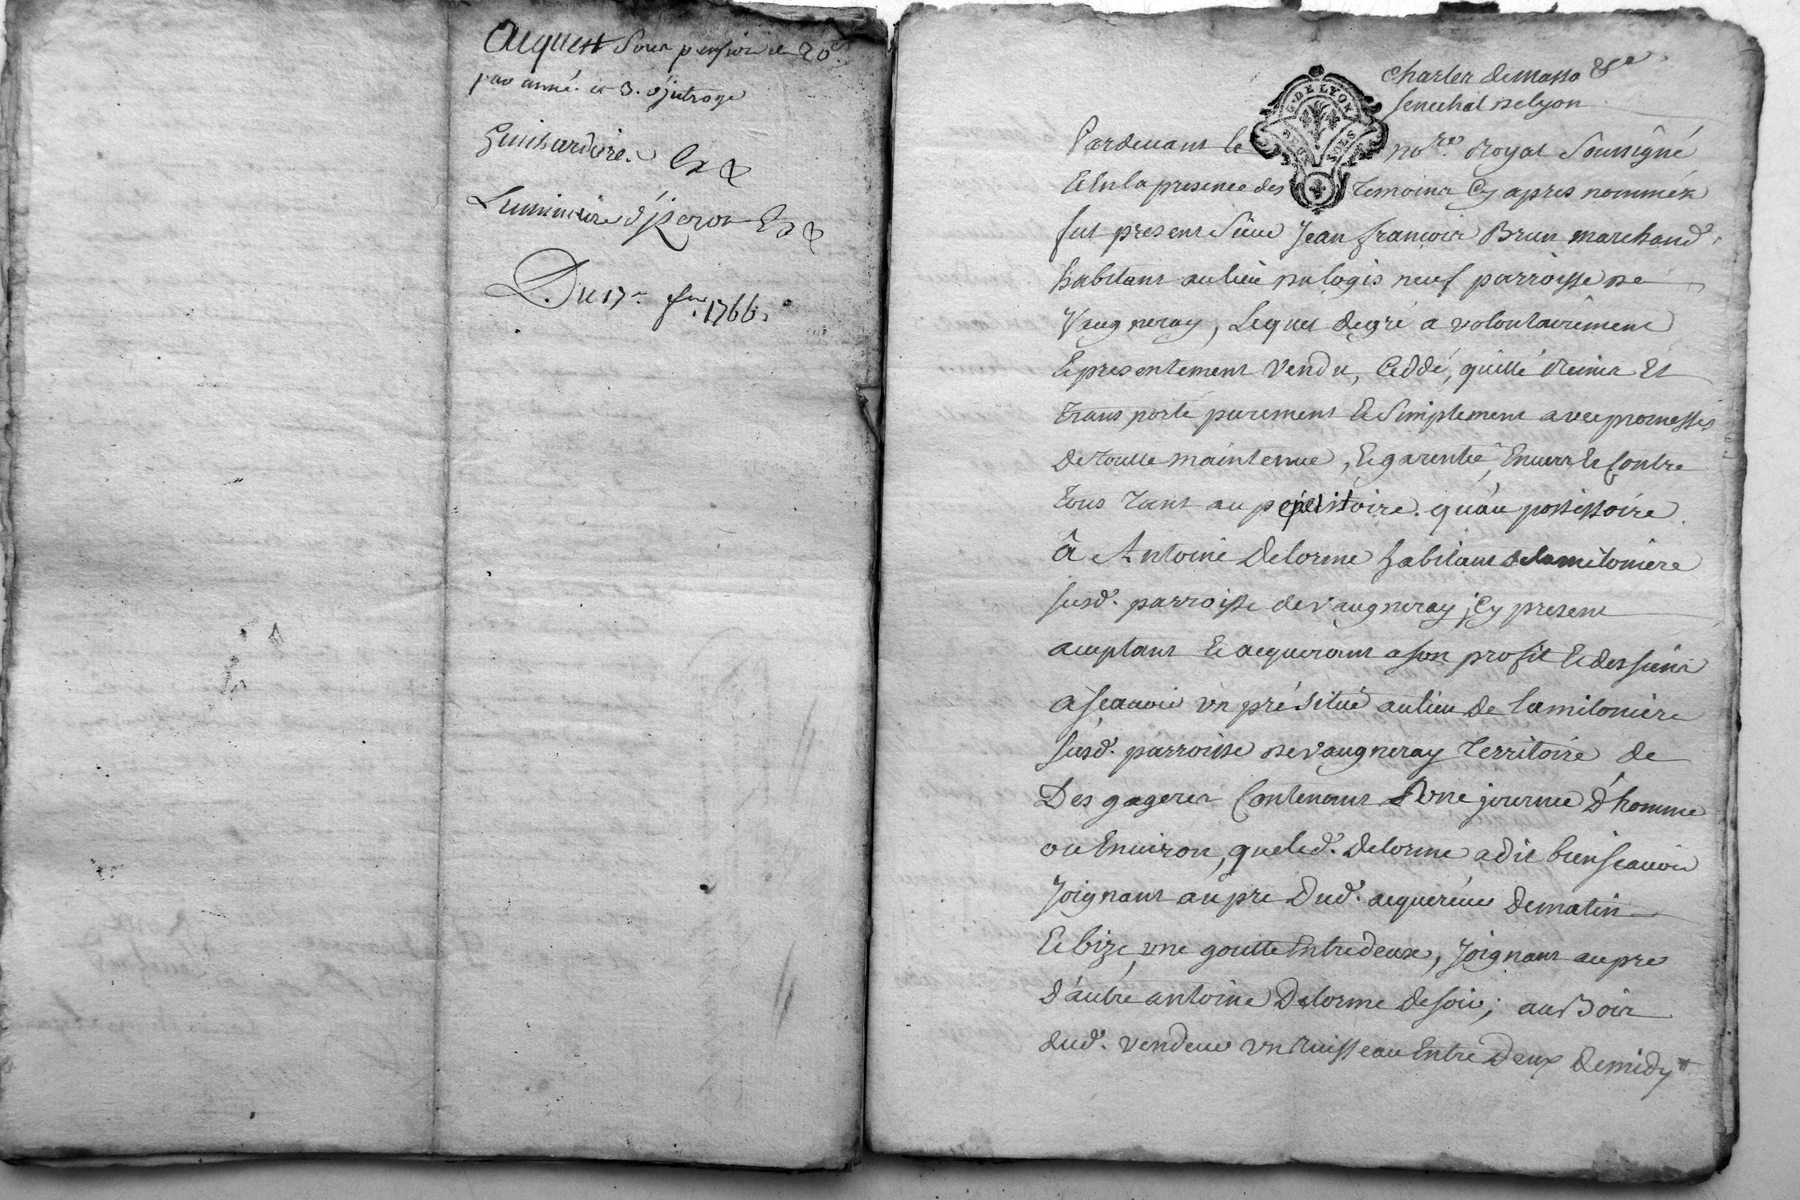 Acquest sous pension de 20 s
par année et 3. d'jntroge
Guichardiere.
Luminaire d'jzeron
Du 17e 1766.
Charles demasso &c
senechal de lyon
G. DE LYON
DEUX SOLS
Pardevant le no.re Royal Soussigné
Et En la presence des temoins Cy apres nommés
fut present Sieur Jean françois Brun marchand
habitant au lieu du logis neuf parroisse de
Vaugneray, Lequel de gré a volontairement
Et presentement Vendu, Ceddé, quitté Remis Et
transporté purement Et Simplement avec promesses
De toutte maintenue, Et garentie, Envers Et Contre
tous tant au petitoire. qu'au possessoire
à Antoine Delorme habitant de lamiloniere
susd. parroisse de vaugneray jCy present
acceptant Et acquerant a son profit Et des siens
a scavoir un pré Situé au lieu de lamiloniere
susd. parroisse de vaugneray territoire de
Des gageres Contenant une journee d'homme
ou Environ, que led. Delorme a dit bien scavoir
Joignant au pre Dud. acquereur de matin
Et bize, une goutte Entredeux, Joignant au pre
d'autre antoine Delorme de soir; au Bois
dud. vendeur un Ruisseau Entre Deux de midy